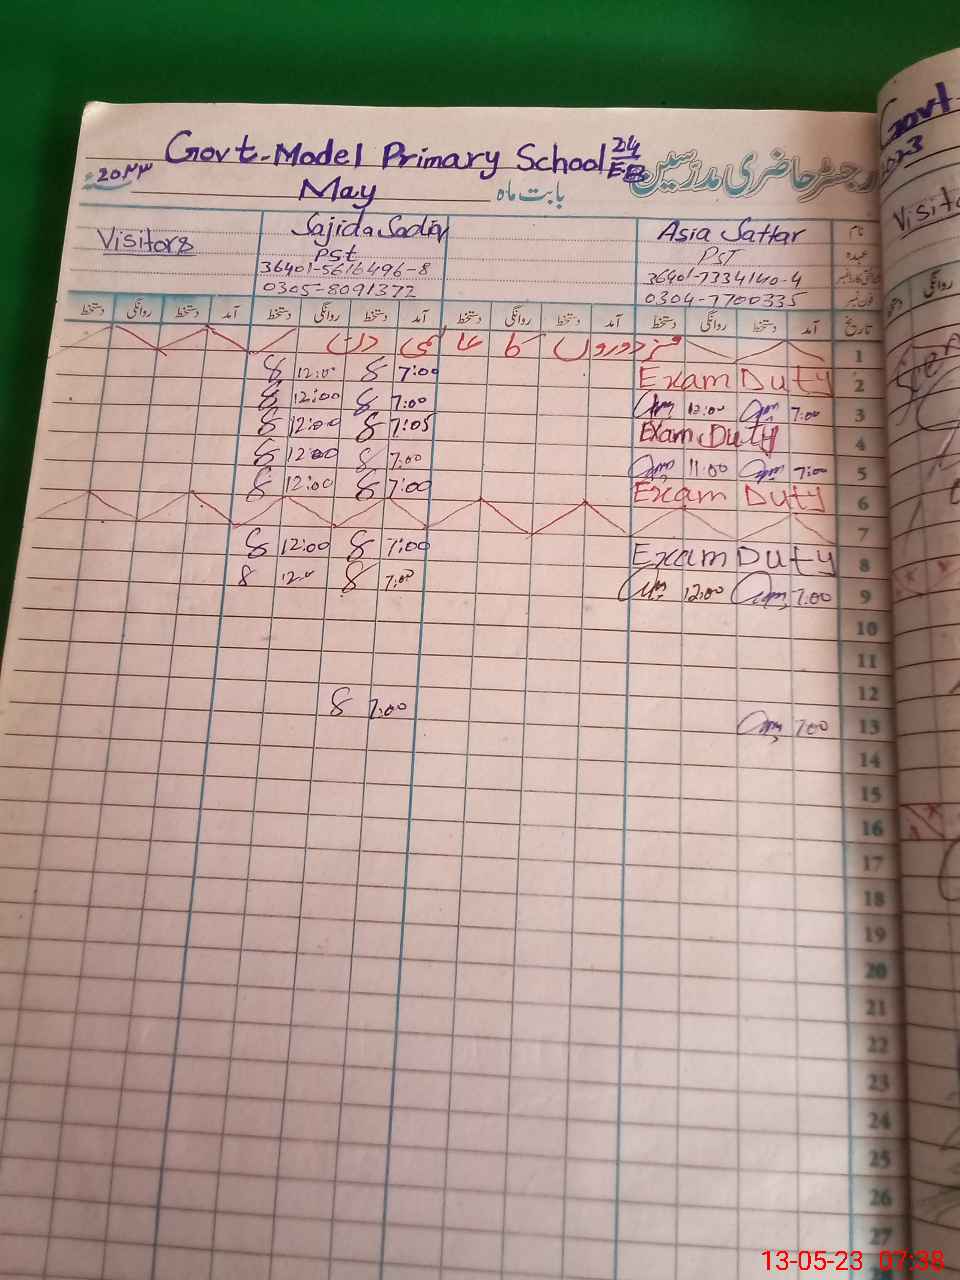 Govt-Model Primary School 24/EB رجسٹر حاضری مدرسین
۲۰۲۳ May بابت ماہ
Visitors Sajida Sadiq Asia Sattar نام
PST PST عہدہ
36401-5616496-8 36401-7734140-4
0305-8091372 0304-7700335 فون نمبر
دستخط روانگی دستخط آمد دستخط روانگی دستخط آمد دستخط روانگی دستخط آمد دستخط روانگی دستخط آمد تاریخ
مزدوروں کا عالمی دن 1
12:00 7:00 Exam Duty 2
12:00 7:00 12:00 7:00 3
12:00 7:05 Exam Duty 4
12:00 7:00 11:00 7:00 5
12:00 7:00 Exam Duty 6
7
12:00 7:00 Exam Duty 8
12:00 7:00 12:00 7:00 9
10
11
12
7:00 7:00 13
14
15
16
17
18
19
20
21
22
23
24
25
26
27
Govt
2023
Visito
روانگی
13-05-23 07:38